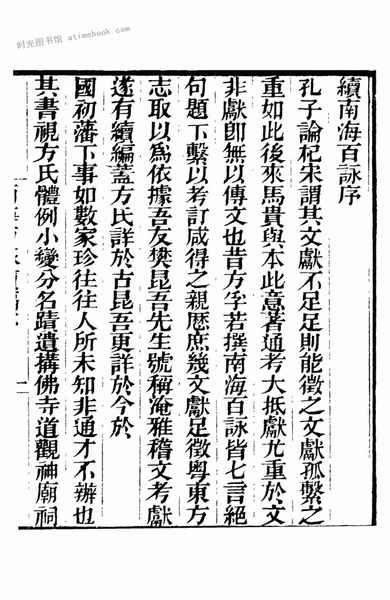 时光图书馆 atimebook.com
續南海百詠序
孔子論杞宋謂其文獻不足足則能徵之文獻孤繫之
重如此後來馬貴與本此意著通考大抵獻尤重於文
非獻卽無以傳文也昔方孚若撰南海百詠皆七言絕
句題下繫以考訂咸得之親歷庶幾文獻足徵粵東方
志取以爲依據吾友樊昆吾先生號稱淹雅稽文考獻
遂有續編蓋方氏詳於古昆吾更詳於今於
國初藩下事如數家珍往往人所未知非通才不辦也
其書視方氏體例小變分名蹟遺搆佛寺道觀神廟祠